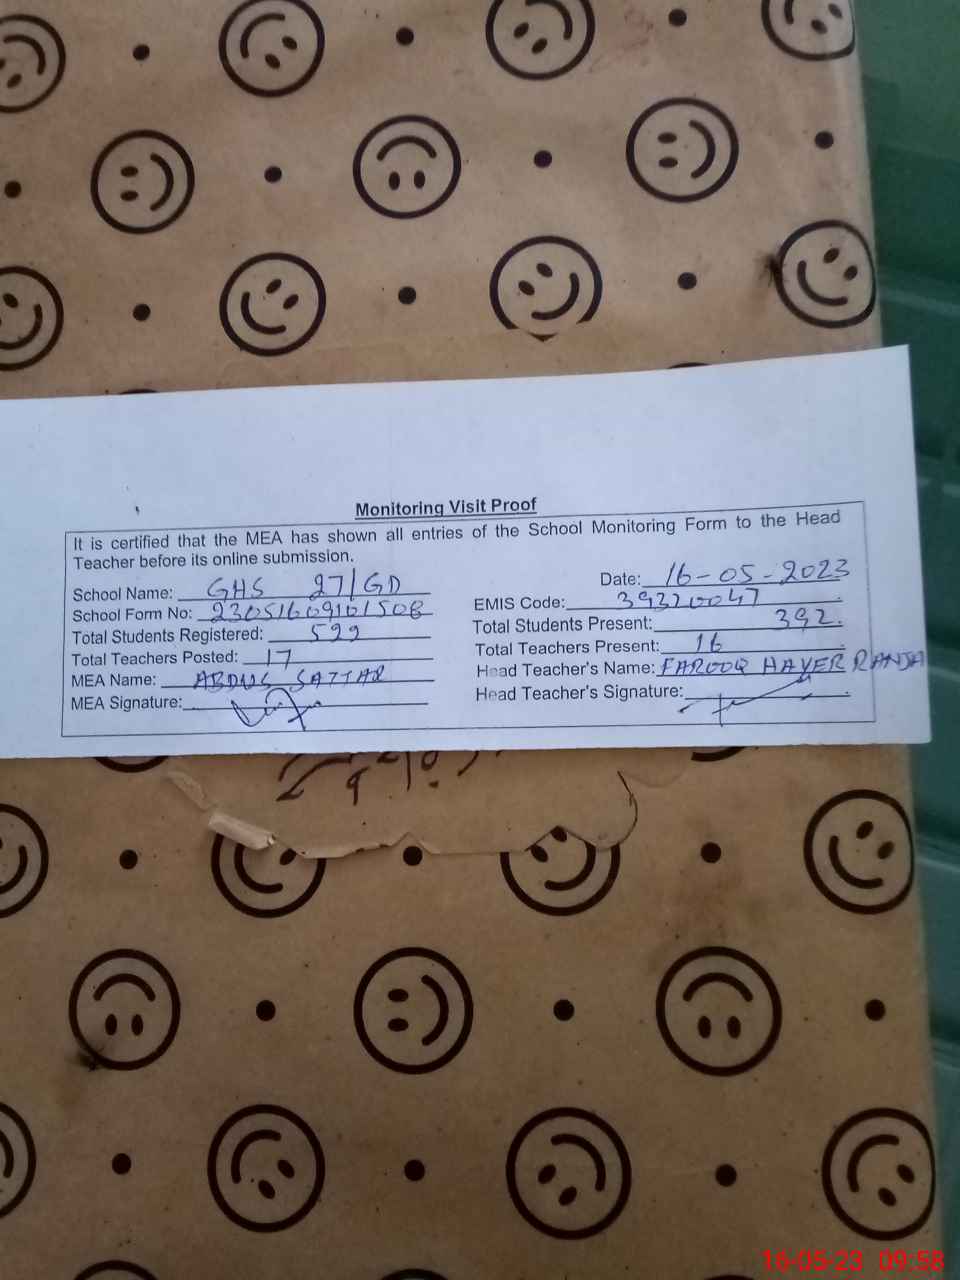 Monitoring Visit Proof
It is certified that the MEA has shown all entries of the School Monitoring Form to the Head
Teacher before its online submission.
Date: 16-05-2023
School Name: GHS 27/GD
EMIS Code: 39320047
School Form No: 23051609101508
Total Students Present: 392
Total Students Registered: 599
Total Teachers Present: 16
Total Teachers Posted: 17
Head Teacher's Name: FAROOQ HAYER RANJA
MEA Name: ABDUS SATTAR
Head Teacher's Signature:
MEA Signature:
16-05-23 09:58